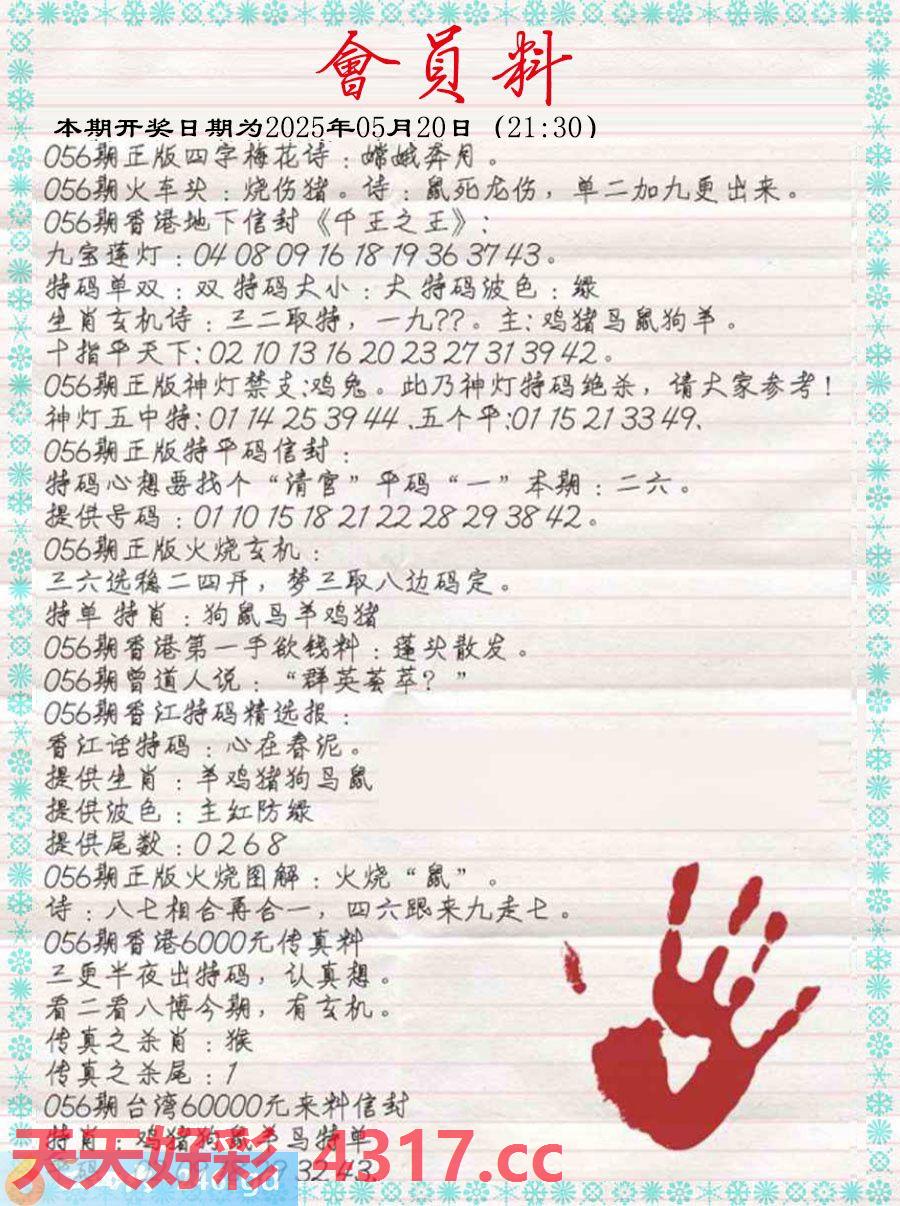 會員料
本期开奖日期为2025年05月20日（21:30）
056期正版四字梅花诗：嫦娥奔月。
056期火车头：烧伤猪。诗：鼠死龙伤，单二加九更出来。
056期香港地下信封《千王之王》:
九宝莲灯：04 08 09 16 18 19 36 37 43。
特码单双：双 特码大小：大 特码波色：绿
生肖玄机诗：三二取特，一九??。主:鸡猪马鼠狗羊。
十指平天下:02 10 13 16 20 23 27 31 39 42。
056期正版神灯禁支:鸡兔。此乃神灯特码绝杀，请大家参考！
神灯五中特:01 14 25 39 44 .五个平:01 15 21 33 49.
056期正版特平码信封：
特码心想要找个“清官”平码“一”本期：二六。
提供号码：01 10 15 18 21 22 28 29 38 42。
056期正版火烧玄机：
三六选稳二四开，梦三取八边码定。
特单 特肖：狗鼠马羊鸡猪
056期香港第一手欲钱料：蓬头散发。
056期曾道人说：“群英荟萃？”
056期香江特码精选报：
香江话特码：心在春泥。
提供生肖：羊鸡猪狗马鼠
提供波色：主红防绿
提供尾数：0 2 6 8
056期正版火烧图解：火烧“鼠”。
诗：八七相合再合一，四六跟来九走七。
056期香港6000元传真料
三更半夜出特码，认真想。
看二看八博今期，有玄机。
传真之杀肖：猴
传真之杀尾：1
056期台湾60000元来料信封
特肖：鸡猪狗鼠羊马特单
32 43.
天天好彩 4317.cc